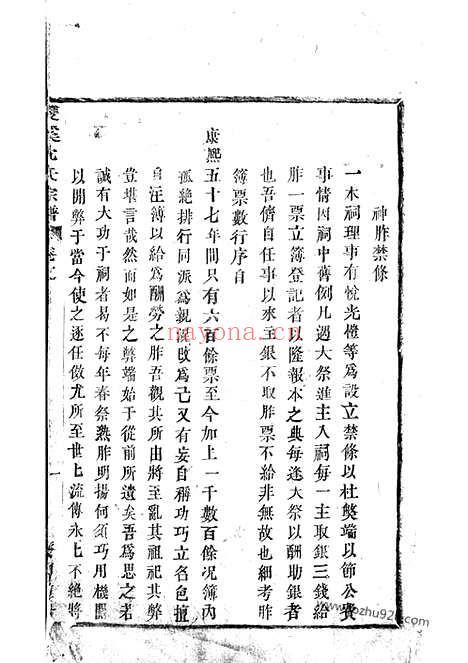 神胙禁條
一本祠理事有悅光燈等爲設立禁條以杜獘端以節公費
事情因祠中舊例凡遇大祭進主入祠每一主取銀三錢給
胙一票立簿登記者以隆報本之典每逢大祭以酬助銀者
也吾儕自任事以來主銀不取胙票不給非無故也細考胙
簿票數行序自
康熙五十七年間只有六百餘票至今加上一千數百餘况簿內
孤絶排行同派爲親混改爲己又有妄自稱功巧立名色擅
自注簿以給爲酬勞之胙吾觀其所由將至亂其祖祀其弊
豈堪言哉然而如是之弊端始于從前所遺矣吾爲思之若
誠有大功于祠者曷不每年春祭熱胙明揚何須巧用機關
以開弊于當今使之逐任倣尤所至世上流傳永上不絕將
宗譜
nayona.cn
www.pozhu929.com